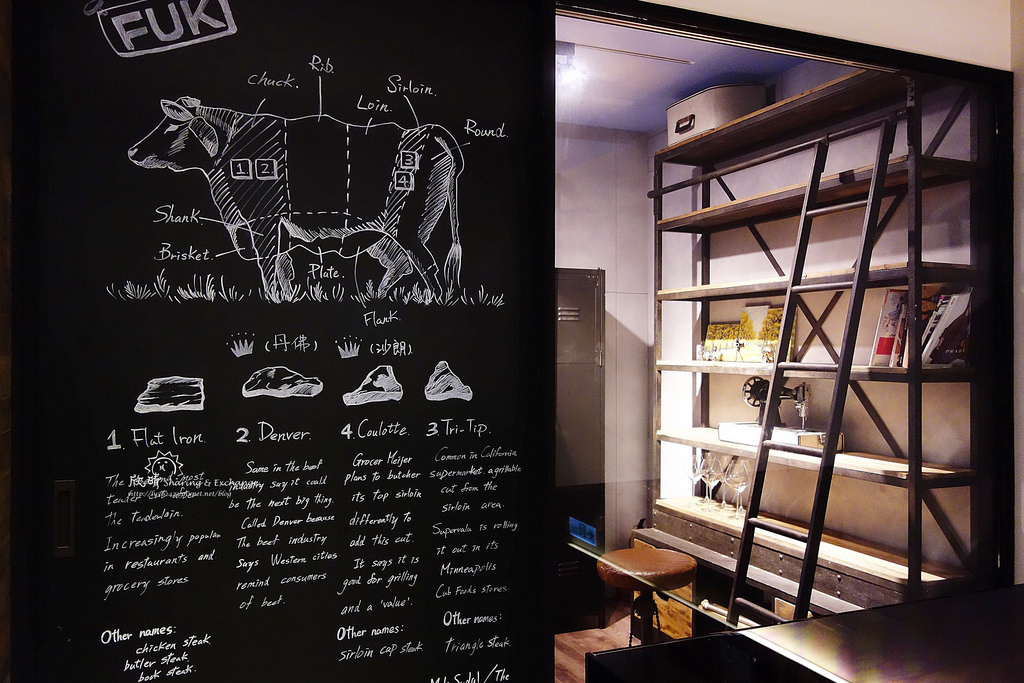 FUK
Rib.
chuck.
Sirloin.
Loin.
Round.
1 2
3
4
Shank.
Brisket.
Plate.
Flank.
(丹佛) (沙朗)
1. Flat Iron.
The most
tender
the tenderloin.
Increasingly popular
in restaurants and
grocery stores
Other names:
chicken steak
butler steak
book steak.
2. Denver.
Some in the beef
say it could
be the next big thing.
Called Denver because
The beef industry
says Western cities
remind consumers
of beef.
4. Coulotte.
Grocer Meijer
plans to butcher
its top sirloin
differently to
add this cut.
It says it is
good for grilling
and a 'value'.
Other names:
sirloin cap steak
3. Tri-Tip.
Common in California
supermarket, a grillable
cut from the
sirloin area.
Supervalu is rolling
it out in its
Minneapolis
Cub Foods stores.
Other names:
Triangle steak.
/The
Sharing & Exchange